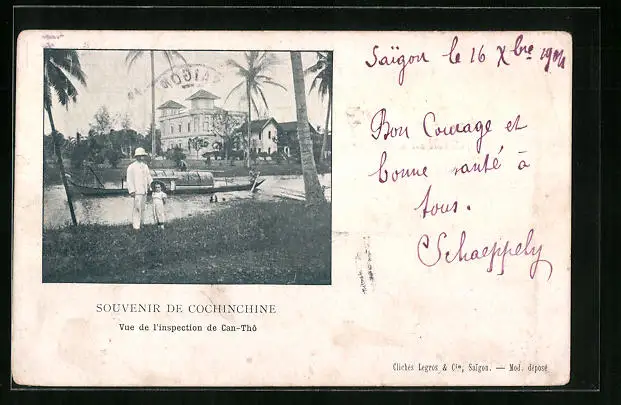 Saïgon le 16 Xbre 1904
Bon Courage et
bonne santé à
tous.
Schaeppely
SOUVENIR DE COCHINCHINE
Vue de l'inspection de Can-Thô
Clichés Legros & Cie, Saïgon. — Mod. déposé